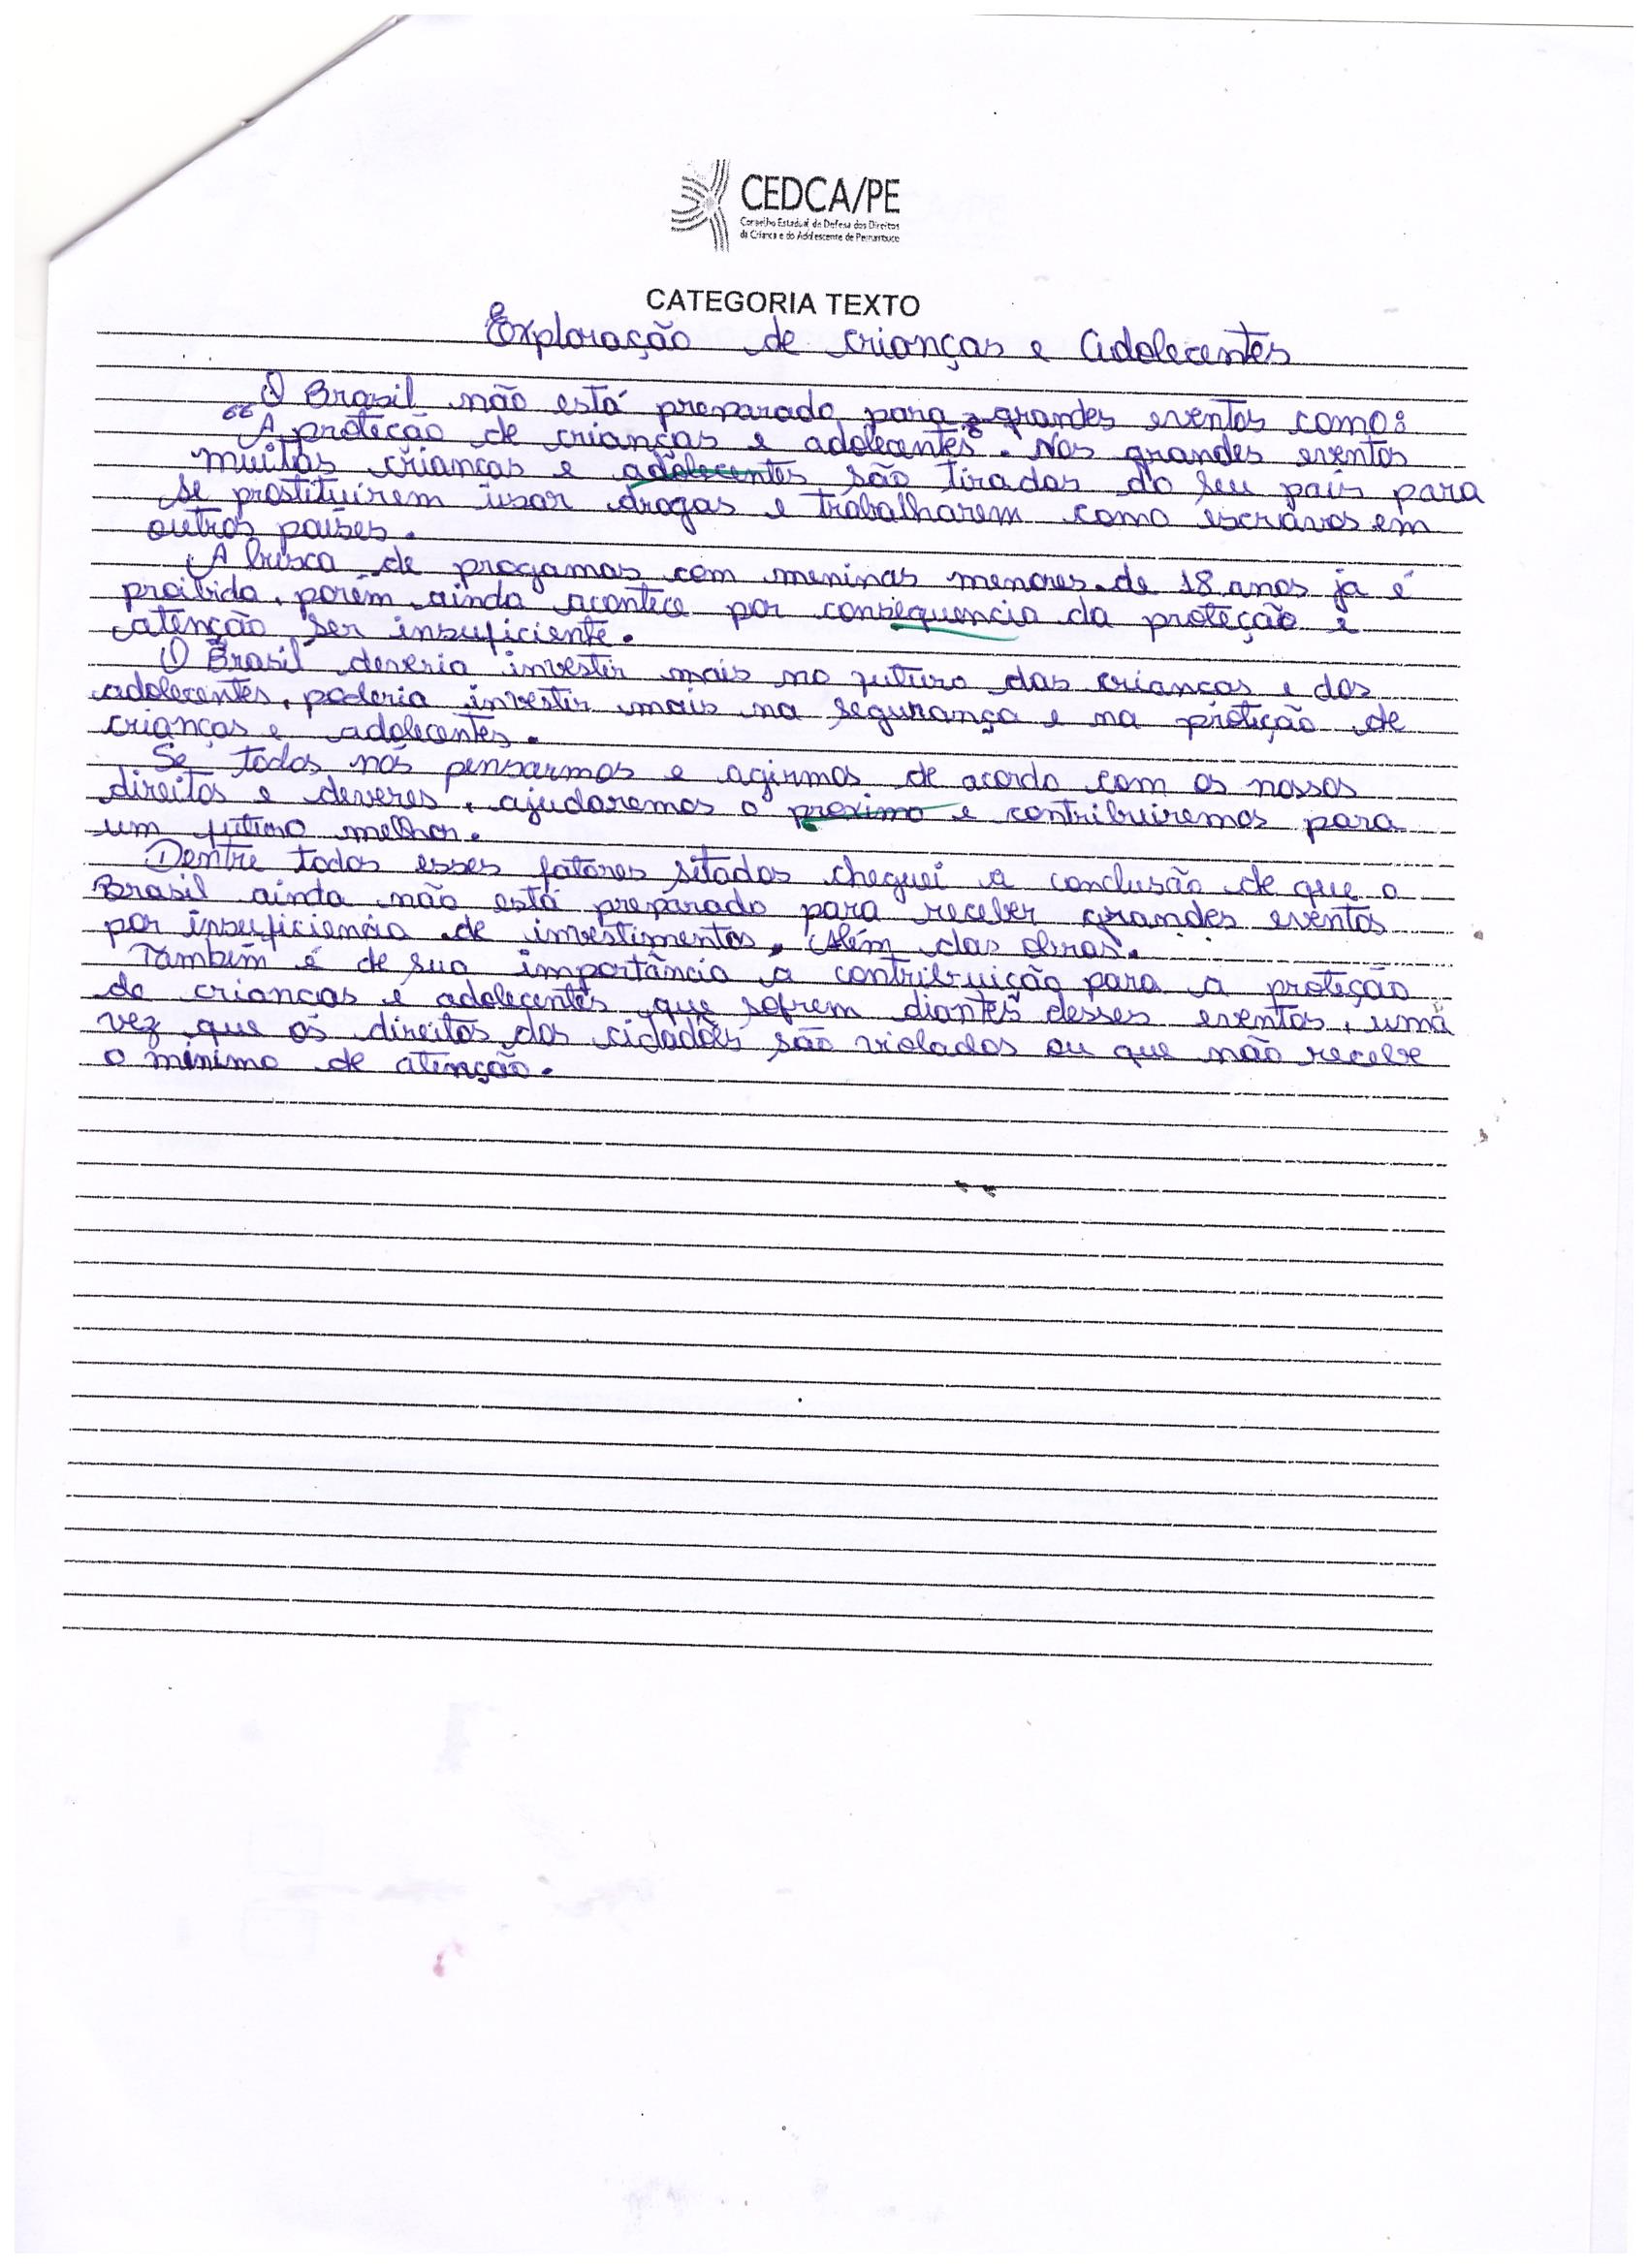 CEDCA/PE
Conselho Estadual de Defesa dos Direitos
da Criança e do Adolescente de Pernambuco
CATEGORIA TEXTO
Exploração de crianças e Adolecentes
O Brasil não está preparado para grandes eventos como:
"A proteção de crianças e adolecentes". Nos grandes eventos
muitas crianças e adolecentes são tiradas do seu país para
se prostituirem usar drogas e trabalharem como escravos em
outros países.
A busca de progamas com meninas menores de 18 anos ja é
proibida, porém ainda acontece por consequencia da proteção e
atenção ser insuficiente.
O Brasil deveria investir mais no futuro das crianças e dos
adolecentes, poderia investir mais na segurança e na proteção de
crianças e adolecentes.
Se todos nós pensarmos e agirmos de acordo com os nossos
direitos e deveres, ajudaremos o proximo e contribuiremos para
um futuro melhor.
Dentre todos esses fatores sitados cheguei a conclusão de que o
Brasil ainda não está preparado para receber grandes eventos
por insuficiencia de investimentos, Além das obras.
Também é de sua importância a contribuição para a proteção
de crianças e adolecentes que sofrem diantes desses eventos, uma
vez que os direitos dos cidadões são violados ou que não recebe
o mínimo de atenção.